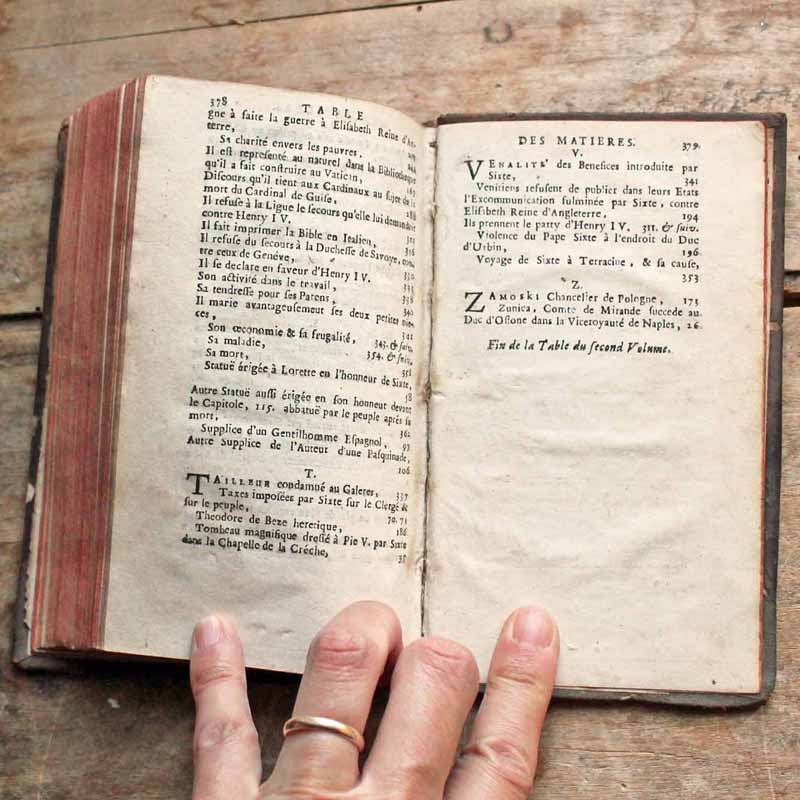 378 TABLE
gne à faire la guerre à Elisabeth Reine d'An-
terre,
Sa charité envers les pauvres,
Il est representé au naturel dans la Bibliotheque
qu'il a fait construire au Vatican,
Discours qu'il tient aux Cardinaux au sujet de la
mort du Cardinal de Guise,
Il refuse à la Ligue le secours qu'elle lui demandoit
contre Henry IV.
Il fait imprimer la Bible en Italien,
Il refuse du secours à la Duchesse de Savoye, con-
tre ceux de Genéve,
Il se declare en faveur d'Henry IV.
Son activité dans le travail,
Sa tendresse pour ses Parens,
Il marie avantageusement ses deux petites nie-
ces,
Son œconomie & sa frugalité, 343. & suiv.
Sa maladie, 354. & suiv.
Sa mort,
Statuë érigée à Lorette en l'honneur de Sixte,
58
Autre Statuë aussi érigée en son honneur devant
le Capitole, 115. abbatuë par le peuple après sa
mort, 362
Supplice d'un Gentilhomme Espagnol, 97
Autre Supplice de l'Auteur d'une Pasquinade,
106
T.
TAILLEUR condamué au Galeres, 337
Taxes imposées par Sixte sur le Clergé &
sur le peuple, 70. 71
Theodore de Beze heretique, 186
Tombeau magnifique dressé à Pie V. par Sixte
dans la Chapelle de la Créche, 35
DES MATIERES. 379
V.
VENALITE' des Benefices introduite par
Sixte, 341
Venitiens refusent de publier dans leurs Etats
l'Excommunication fulminée par Sixte, contre
Elisabeth Reine d'Angleterre, 194
Ils prennent le party d'Henry IV. 311. & suiv.
Violence du Pape Sixte à l'endroit du Duc
d'Urbin, 196
Voyage de Sixte à Terracine, & sa cause,
353
Z.
ZAMOSKI Chancelier de Pologne, 173
Zunica, Comte de Mirande succede au
Duc d'Ossone dans la Viceroyauté de Naples, 26.
Fin de la Table du second Volume.